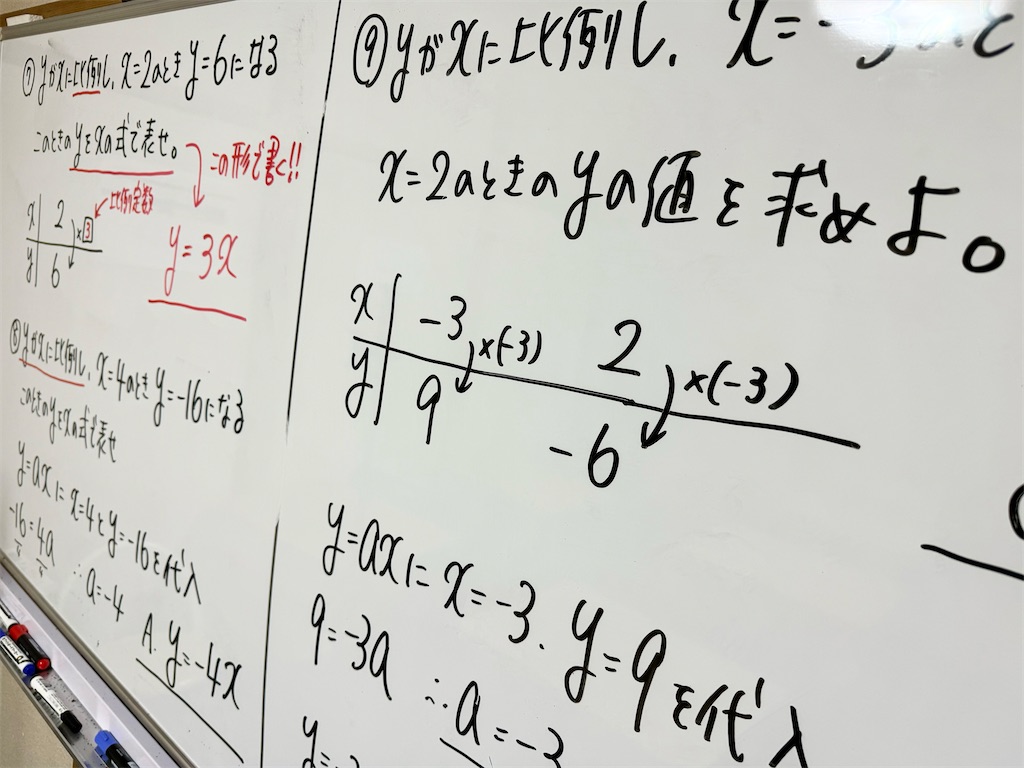 ① yがxに比例し、x=2のとき y=6になる
このときのyをxの式で表せ。
この形で書く!!
比例定数
x 2 ×3
y 6
y=3x
⑧ yがxに比例し、x=4のとき y=-16になる
このときのyをxの式で表せ
y=axに x=4と y=-16を代入
-16=4a
∴a=-4
A. y=-4x
⑨ yがxに比例し、x=-3のと
x=2のときのyの値を求めよ。
x -3 ×(-3) 2 ×(-3)
y 9 -6
y=axに x=-3、y=9を代入
9=-3a ∴a=-3